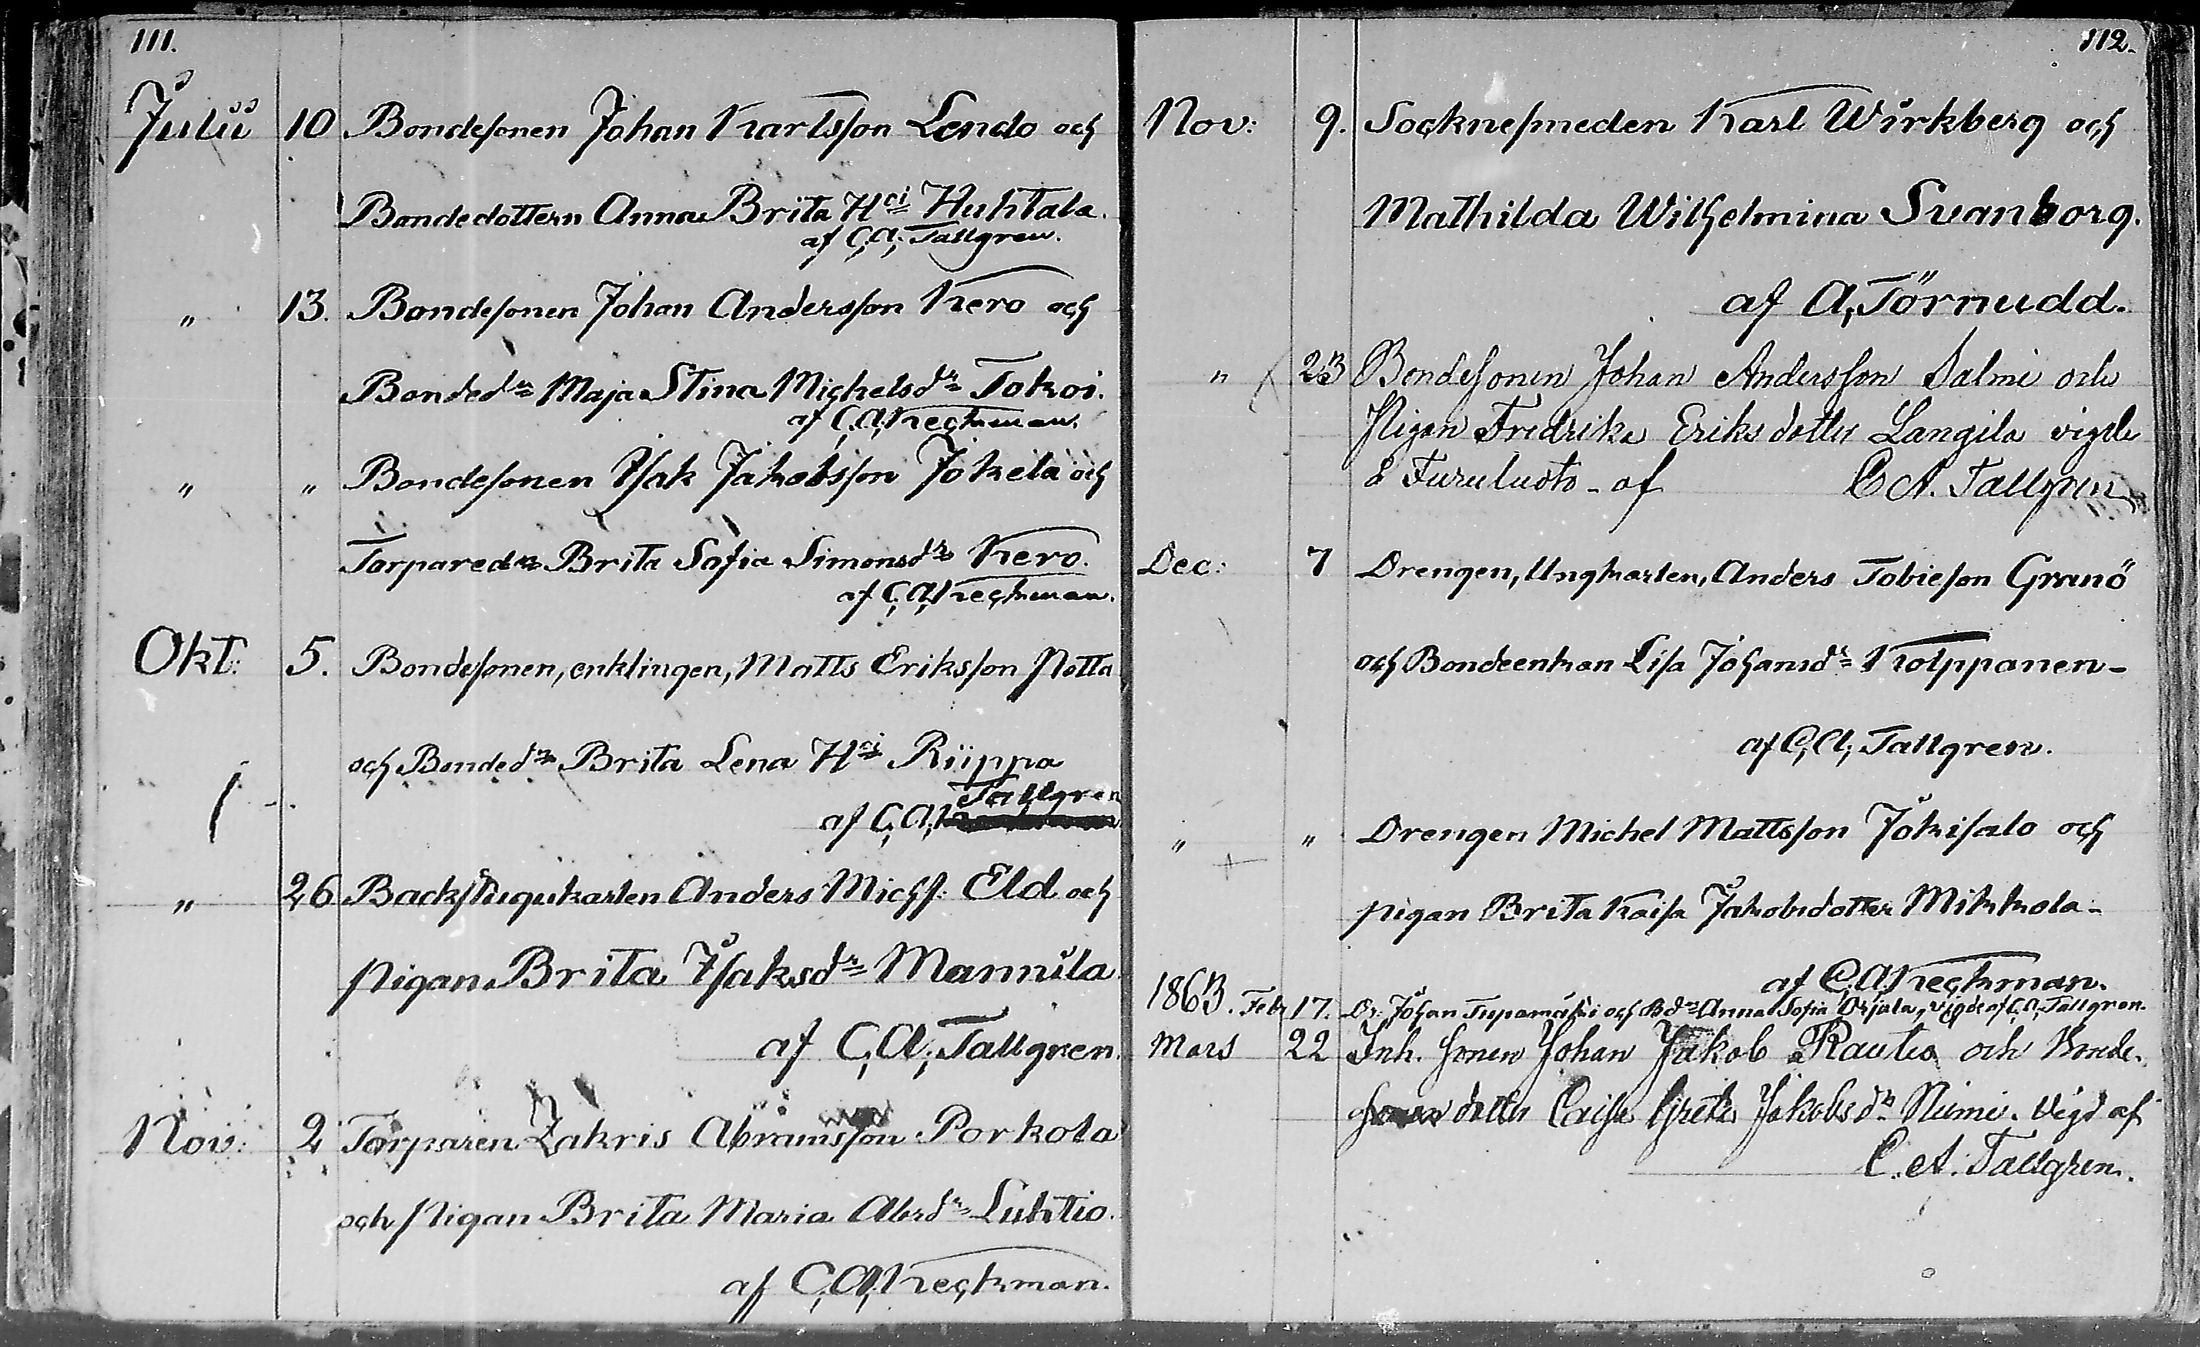 111.
Julii 10 Bondesonen Johan Karlsson Lendo och
Bondedottern Anna Brita Hci Huhtala.
af C,A, Tallgren.
" 13. Bondesonen Johan Andersson Kero och
Bondedn Maja Stina Michelsdr Tokoi.
af C,A, Keckman.
" " Bondesonen Isak Jakobsson Jokela och
Torparedn Brita Sofia Simonsdr Kero.
af C,A, Keckman.
Okt: 5. Bondesonen, enklingen, Matts Eriksson Plotta
och Bondedn Brita Lena Hci Riippa
Tallgren
af C,A,
" 26 Backstugukarlen Anders Michs: Eld och
pigan Brita Isaksdr Mannila
af C,A, Tallgren.
Nov: 2 Torparen Zakris Abramsson Porkola
och pigan Brita Maria Abrdr Luhtio.
af C,A, Keckman.
112.
Nov: 9. Socknesmeden Karl Wirkberg och
Mathilda Wilhelmina Svanborg.
af A, Törnudd.
" 23 Bondesonen Johan Andersson Salmi och
Pigan Fredrika Eriksdotter Langila vigde
å Furuluoto - af C A. Tallgren
Dec: 7 Drengen, Ungkarlen, Anders Tobieson Granö
och Bondeenkan Lisa Johansdr Kolppanen -
af C, A, Tallgren.
" " Drengen Michel Mattsson Jokisalo och
pigan Brita Kaisa Jakobsdotter Mikkola -
af C. A. Keckman.
1863. Febr 17. Dr: Johan Tupamäki och Bdn Anna Sofia Orjala, vigde af C, A, Tallgren.
Mars 22 Inh. sonen Johan Jakob Rautio och Bonde-
dotter Caisa Greta Jakobsdr Niemi. Vigd af
C. A. Tallgren.